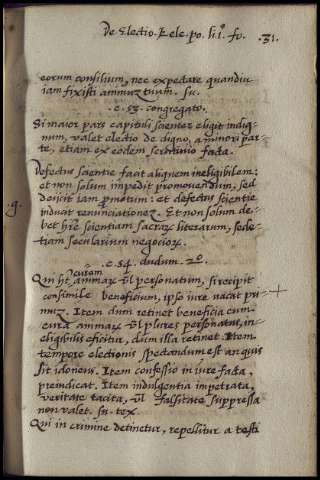 De Electio. & ele. po. li.º fo. .31.
eorum consilium, nec expectare quandiu
iam fixisti animuz tuum. su.
.c. 53. congregato.
Si maior pars capituli scienter eligit indig-
num, valet electio de digno, a minori par-
te, etiam ex eodem scrutinio facta.
Defectus scientie facit aliquem ineligibilem:
et non solum impedit promovendum, sed
deijcit iam pmotum: et defectus scientie
renunciationez. Et non solum de-
bet hre scientiam sacrax literarum, sed e-
tiam secularium negociox.
.g.
.c. 54. dudum. 2º.
Qui ht curam animax vl personatum, si recipit
consimile beneficium, ipso iure vacat pri-
muz. Item dum retinet beneficia cum
cura animax vl plures personatus, in-
eligibilis efficitur, dum illa retinet. Item
tempore electionis spectandum est an quis
sit idoneus. Item confessio in iure facta,
preiudicat. Item indulgentia impetrata,
veritate tacita, vl falsitate suppressa
non valet. su. tex.
Qui in crimine detinetur, repellitur a testi